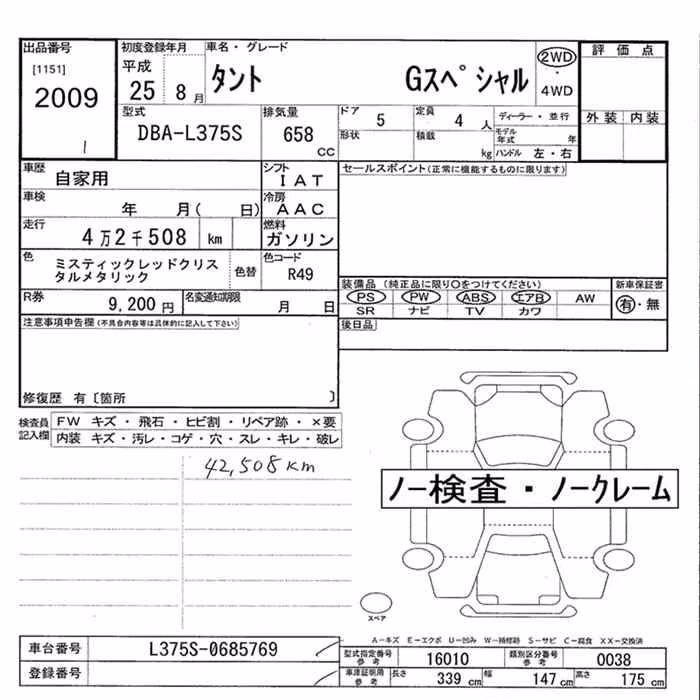 出品番号
[1151]
2009
1
初度登録年月
平成
25 8 月
車名・グレード
タント Gスペシャル
2WD
・
4WD
評 価 点
外 装 内 装
型式
DBA-L375S
排気量
658
CC
ドア 5
形状
定員 4 人
積載 kg
ディーラー・並行
モデル年式 年
ハンドル 左・右
車歴
自家用
シフト
IAT
セールスポイント(正常に機能するものに限ります)
車検
年 月( 日)
冷房
AAC
走行
4万2千508 km
燃料
ガソリン
色
ミスティックレッドクリス
タルメタリック
色替
色コード
R49
装備品 (純正品に限り○をつけてください)
PS PW ABS エアB AW
SR ナビ TV カワ
新車保証書
有・無
R券
9,200 円
名変通知期限
月 日
後日品
注意事項申告欄(不具合内容等は具体的に記入して下さい)
修復歴 有〔箇所 〕
検査員
記入欄
FW キズ・飛石・ヒビ割・リペア跡・×要
内装 キズ・汚レ・コゲ・穴・スレ・キレ・破レ
42,508km
ノー検査・ノークレーム
スペア
A-キズ E-エクボ U-凹み W-補修跡 S-サビ C-腐食 XX-交換済
車台番号
L375S-0685769
登録番号
型式指定番号
参考
16010
類別区分番号
参考
0038
車庫証明用
参考
長さ 339 cm
幅 147 cm
高さ 175 cm